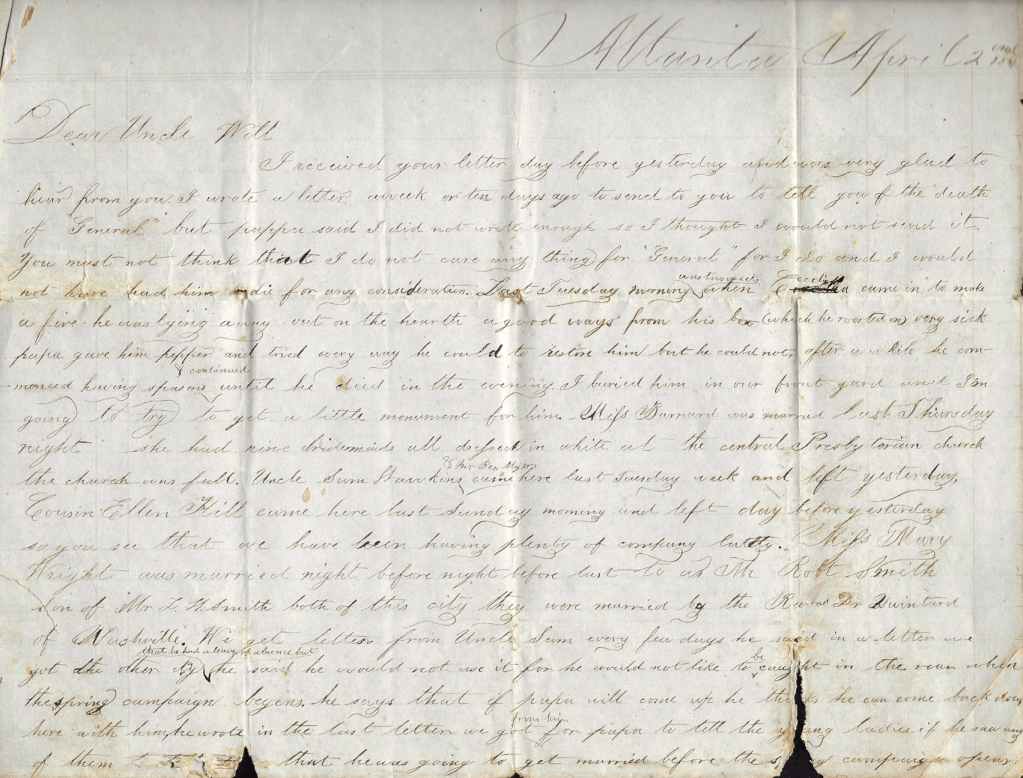 Atlanta April 2
Dear Uncle Will
I received your letter day before yesterday and was very glad to
hear from you. I wrote a letter a week or ten days ago to send to you to tell you of the death
of "General" but pappa said I did not write enough so I thought I would not send it.
You must not think that I do not care any thing for "General" for I do and I would
not have had him die for any consideration. Last Tuesday morning was two weeks when came in to make
a fire he was lying away out on the hearth a good ways from his box (which he roosted on) very sick
papa gave him pepper and tried every way he could to restore him but he could not, after a while he com-
menced having spasms continued until he died in the evening. I buried him in our front yard and I'm
going to try to get a little monument for him. Miss Barnard was married last Thursday
night she had nine bridesmaids all dressed in white at the central Presbyterian church
the church was full. Uncle Sam Hawkins & Mr Ben Myers came here last Tuesday week and left yesterday,
Cousin Ellen Hill came here last Sunday morning and left day before yesterday
so you see that we have been having plenty of company lately. Miss Mary
Wright was married night before night before last to a Mr Robt Smith
son of Mr L. H. Smith both of this city they were married by the Revnd Dr Quintard
of Nashville. We get letters from Uncle Sam every few days he said in a letter we
got the other day that he had a leave of absence but he said he would not use it for he would not like to be caught in the rear when
the spring campaign begins. he says that if papa will come up he thinks he can come back down
here with him, he wrote in the last letter we got from him for papa to tell the young ladies if he saw any
of them that he was going to get married before the campaign opens